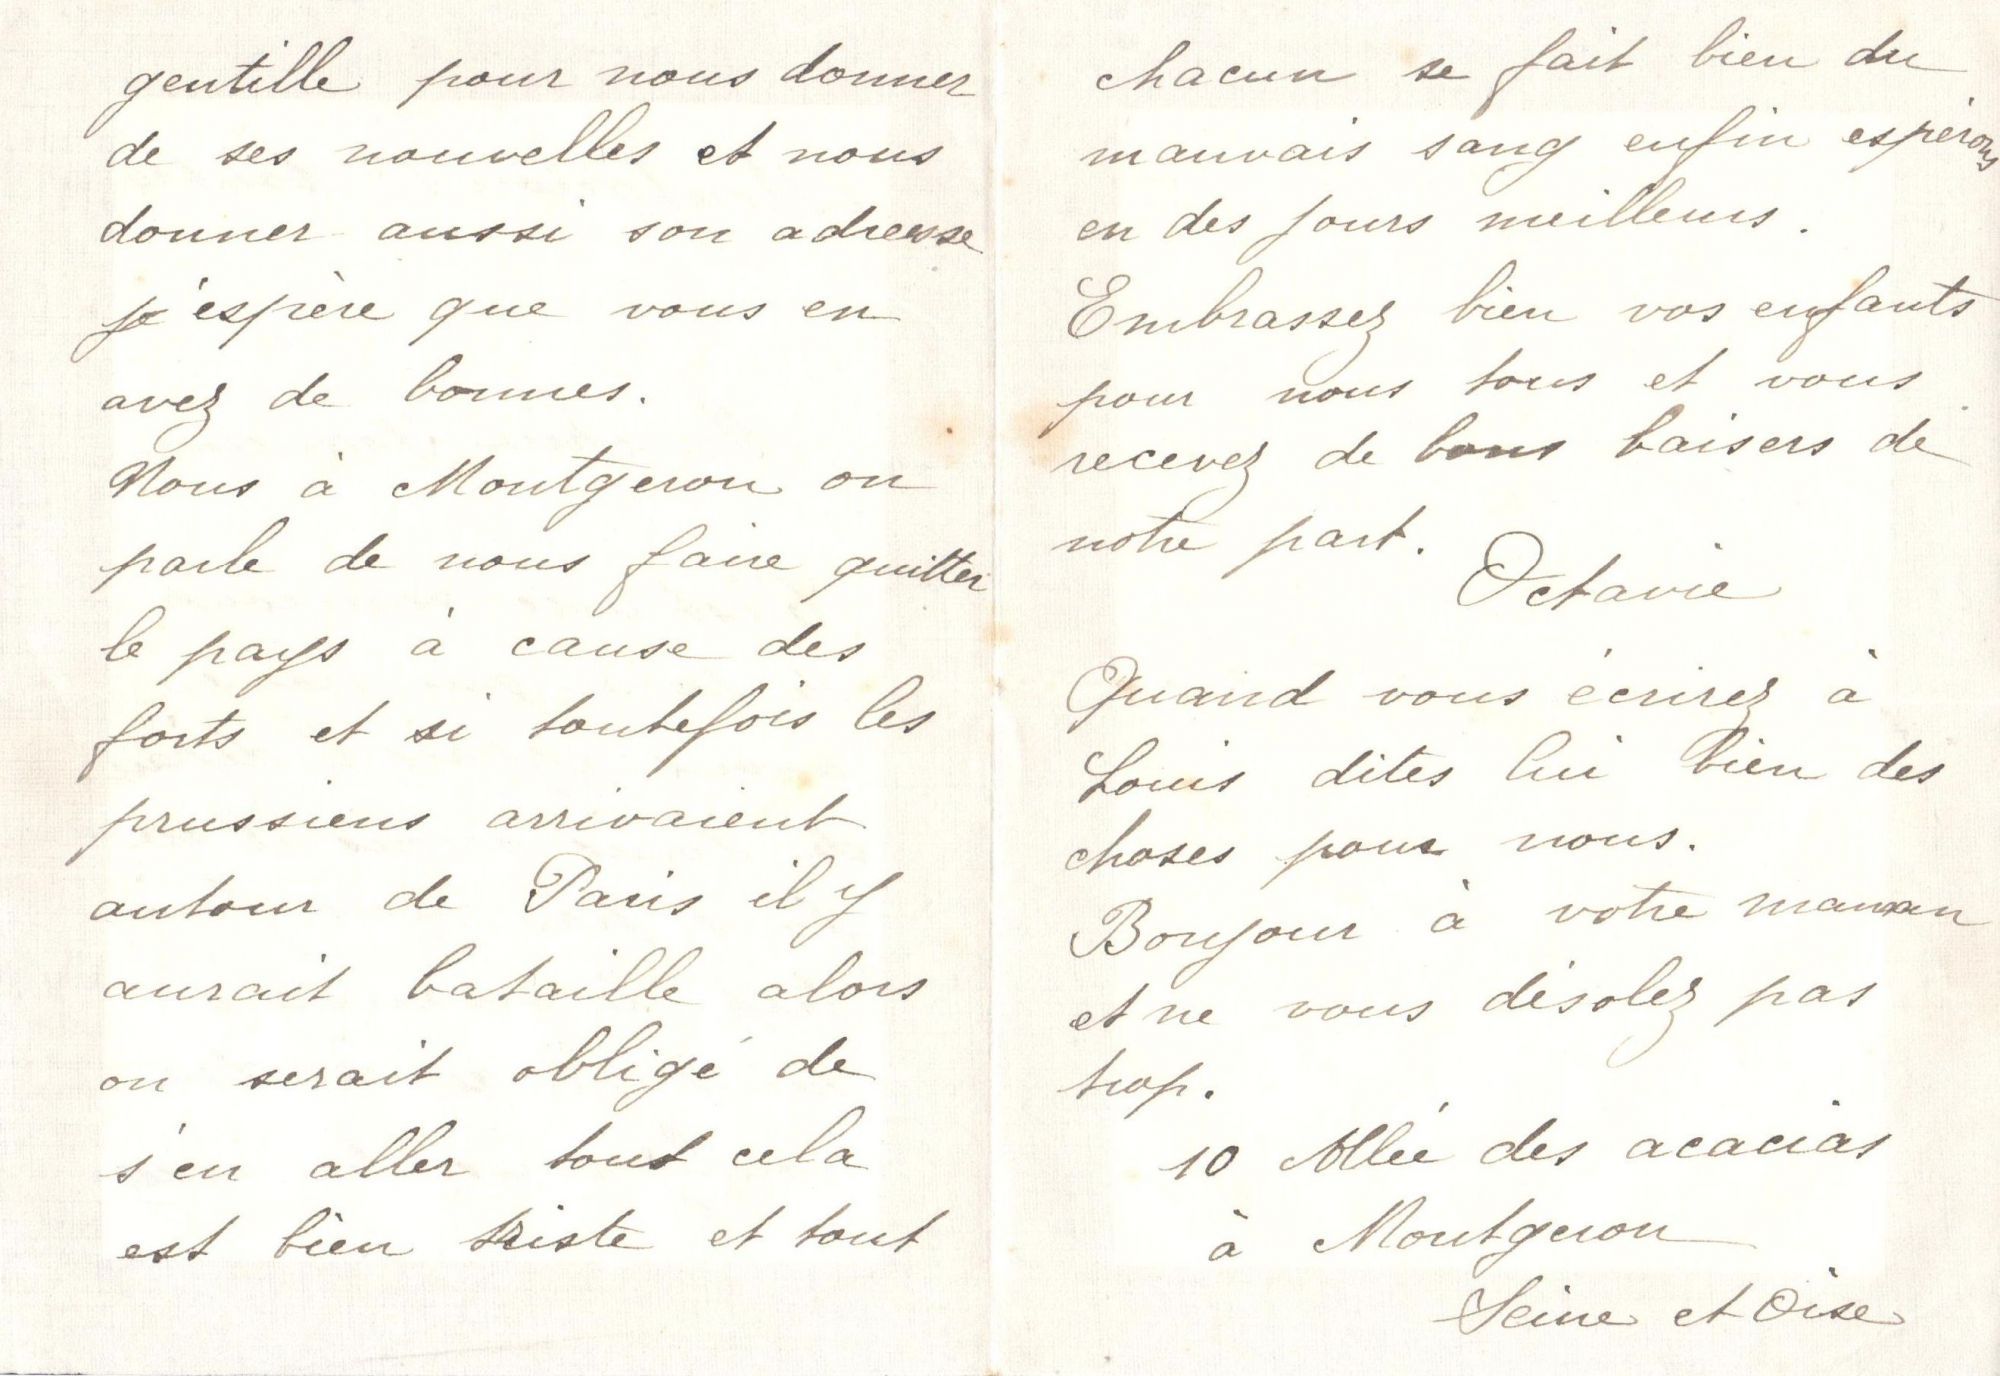 gentille pour nous donner
de ses nouvelles et nous
donner aussi son adresse
j'espère que vous en
avez de bonnes.
Nous à Montgeron on
parle de nous faire quitter
le pays à cause des
forts et si toutefois les
prussiens arrivaient
autour de Paris il y
aurait bataille alors
on serait obligé de
s'en aller tout cela
est bien triste et tout
chacun se fait bien du
mauvais sang enfin espérons
en des jours meilleurs.
Embrassez bien vos enfants
pour nous tous et vous
recevez de bons baisers de
notre part.
Octavie
Quand vous écrirez à
Louis dites lui bien des
choses pour nous.
Bonjour à votre maman
et ne vous désolez pas
trop.
10 Allée des acacias
à Montgeron
Seine et Oise